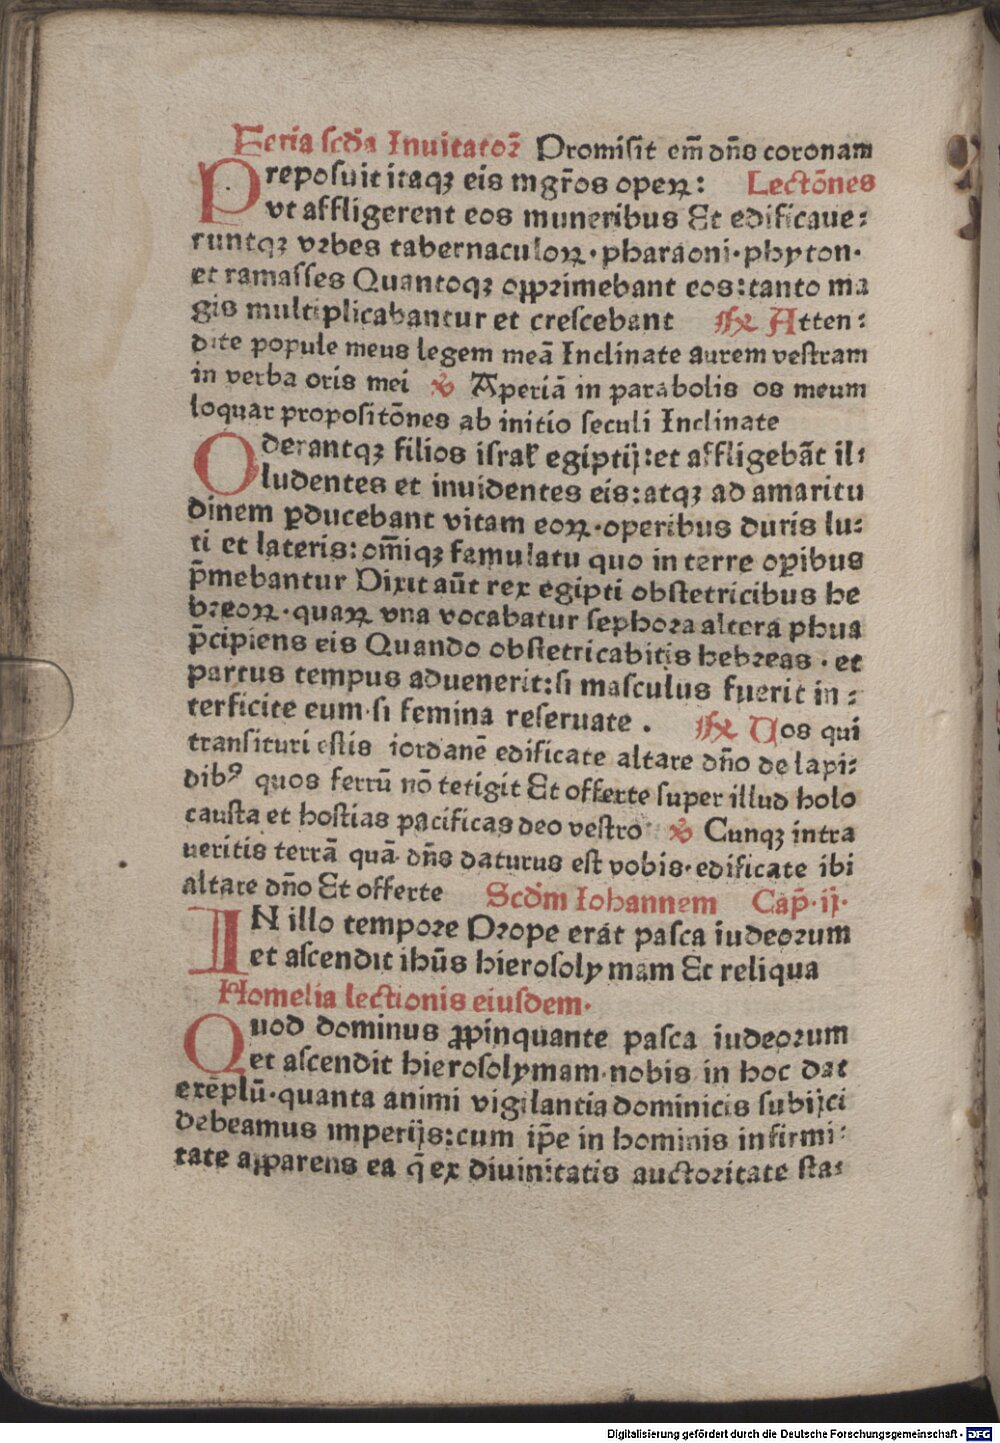 Feria scd̄a Inuitator̄ Promisit em̄ dn̄s coronam
Preposuit itaqꝫ eis mgr̄os operꝝ: Lectōnes
vt affligerent eos muneribus Et edificaue⸗
runtqꝫ vꝛbes tabernaculoꝝ·pharaoni·phyton·
et ramasses Quantoqꝫ oppꝛimebant eos:tanto ma
gis multiplicabantur et crescebant ℟ Atten⸗
dite popule meus legem meā Inclinate aurem vestram
in verba oris mei ℣ Aperiā in parabolis os meum
loquar propositōnes ab initio seculi Inclinate
Oderantqꝫ filios israł egiptij:et affligebāt il⸗
ludentes et inuidentes eis:atqꝫ ad amaritu
dinem ꝑducebant vitam eoꝝ·operibus duris lu⸗
ti et lateris:om̄iqꝫ famulatu quo in terre oꝑibus
p̄mebantur Dixit aūt rex egipti obstetricibus he
bꝛeoꝝ·quaꝝ vna vocabatur sephoꝛa altera phua
p̄cipiens eis Quando obstetricabitis hebꝛeas·et
partus tempus aduenerit:si masculus fuerit in⸗
terficite eum·si femina reseruate. ℟ Uos qui
transituri estis iordanē edificate altare dn̄o de lapi⸗
dibꝰ quos ferrū nō tetigit Et offerte super illud holo
causta et hostias pacificas deo vestro ℣ Cunqꝫ intra
ueritis terrā quā dn̄s daturus est vobis·edificate ibi
altare dn̄o Et offerte Scd̄m Iohannem Cap̄·ij·
IN illo tempoꝛe Pꝛope erat pasca iudeoꝛum
et ascendit ihūs hierosolymam Et reliqua
Homelia lectionis eiusdem·
Quod dominus ꝓpinquante pasca iudeoꝛum
et ascendit hierosolymam·nobis in hoc dat
exēplū·quanta animi vigilantia dominicis subijci
debeamus imperijs:cum ip̄e in hominis infirmi⸗
tate apparens ea q̄ ex diuinitatis auctoꝛitate sta⸗
Digitalisierung gefördert durch die Deutsche Forschungsgemeinschaft - DFG